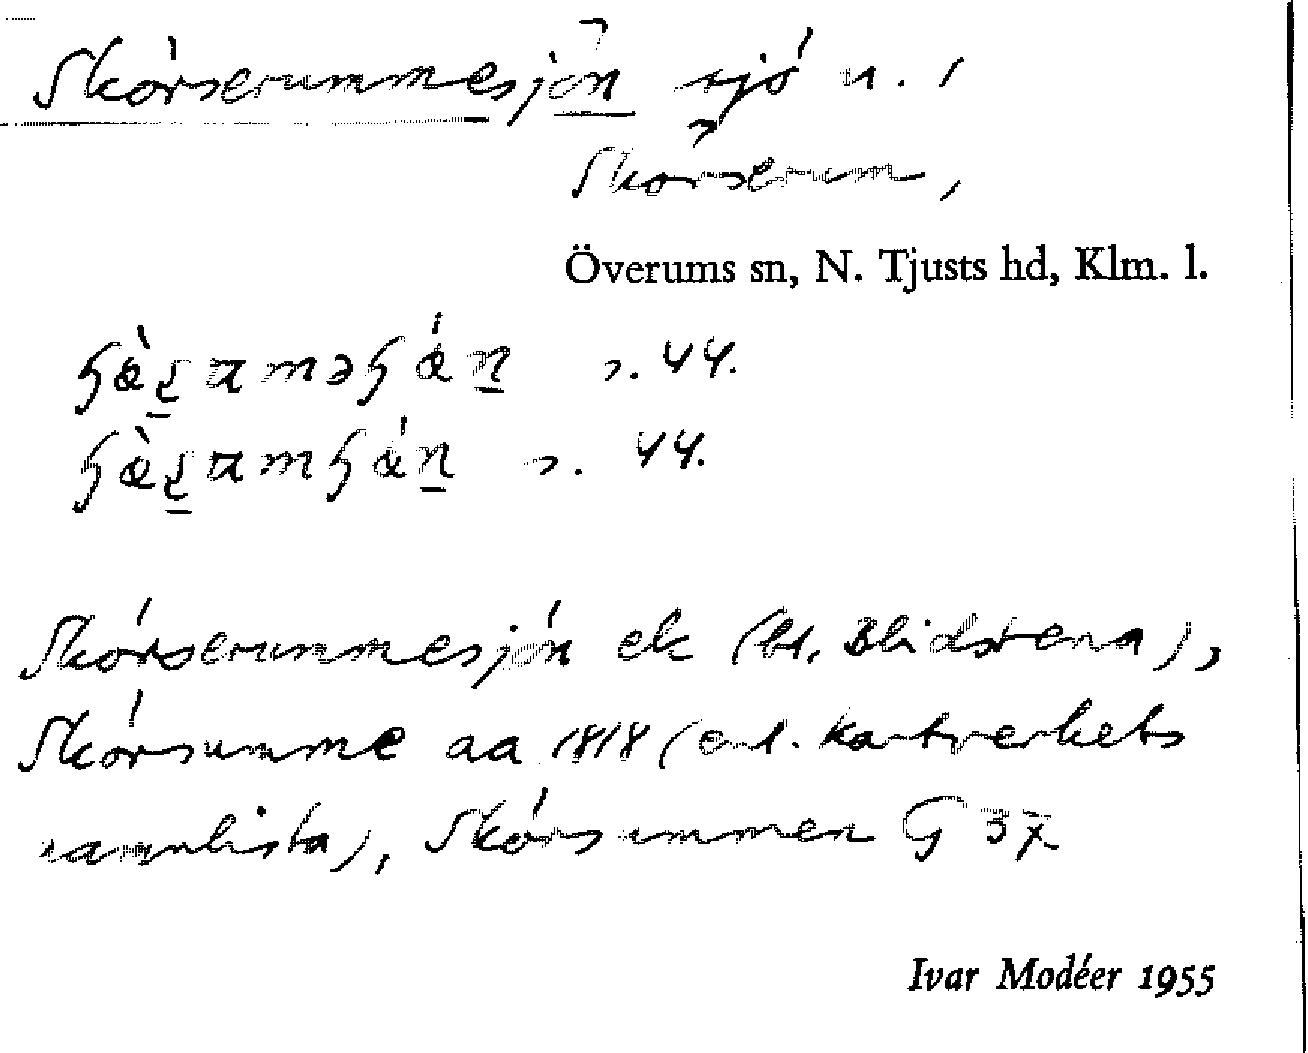 Skörserummesjön sjö n. /
Skörserum,
Överums sn, N. Tjusts hd, Klm. l.
s. 44.
s. 44.
Skörserummesjön ek (bl. Blidstena),
Skörsumme aa 1818 (enl. Kartverkets
namnlista), Skörsummen G 37
Ivar Modéer 1955